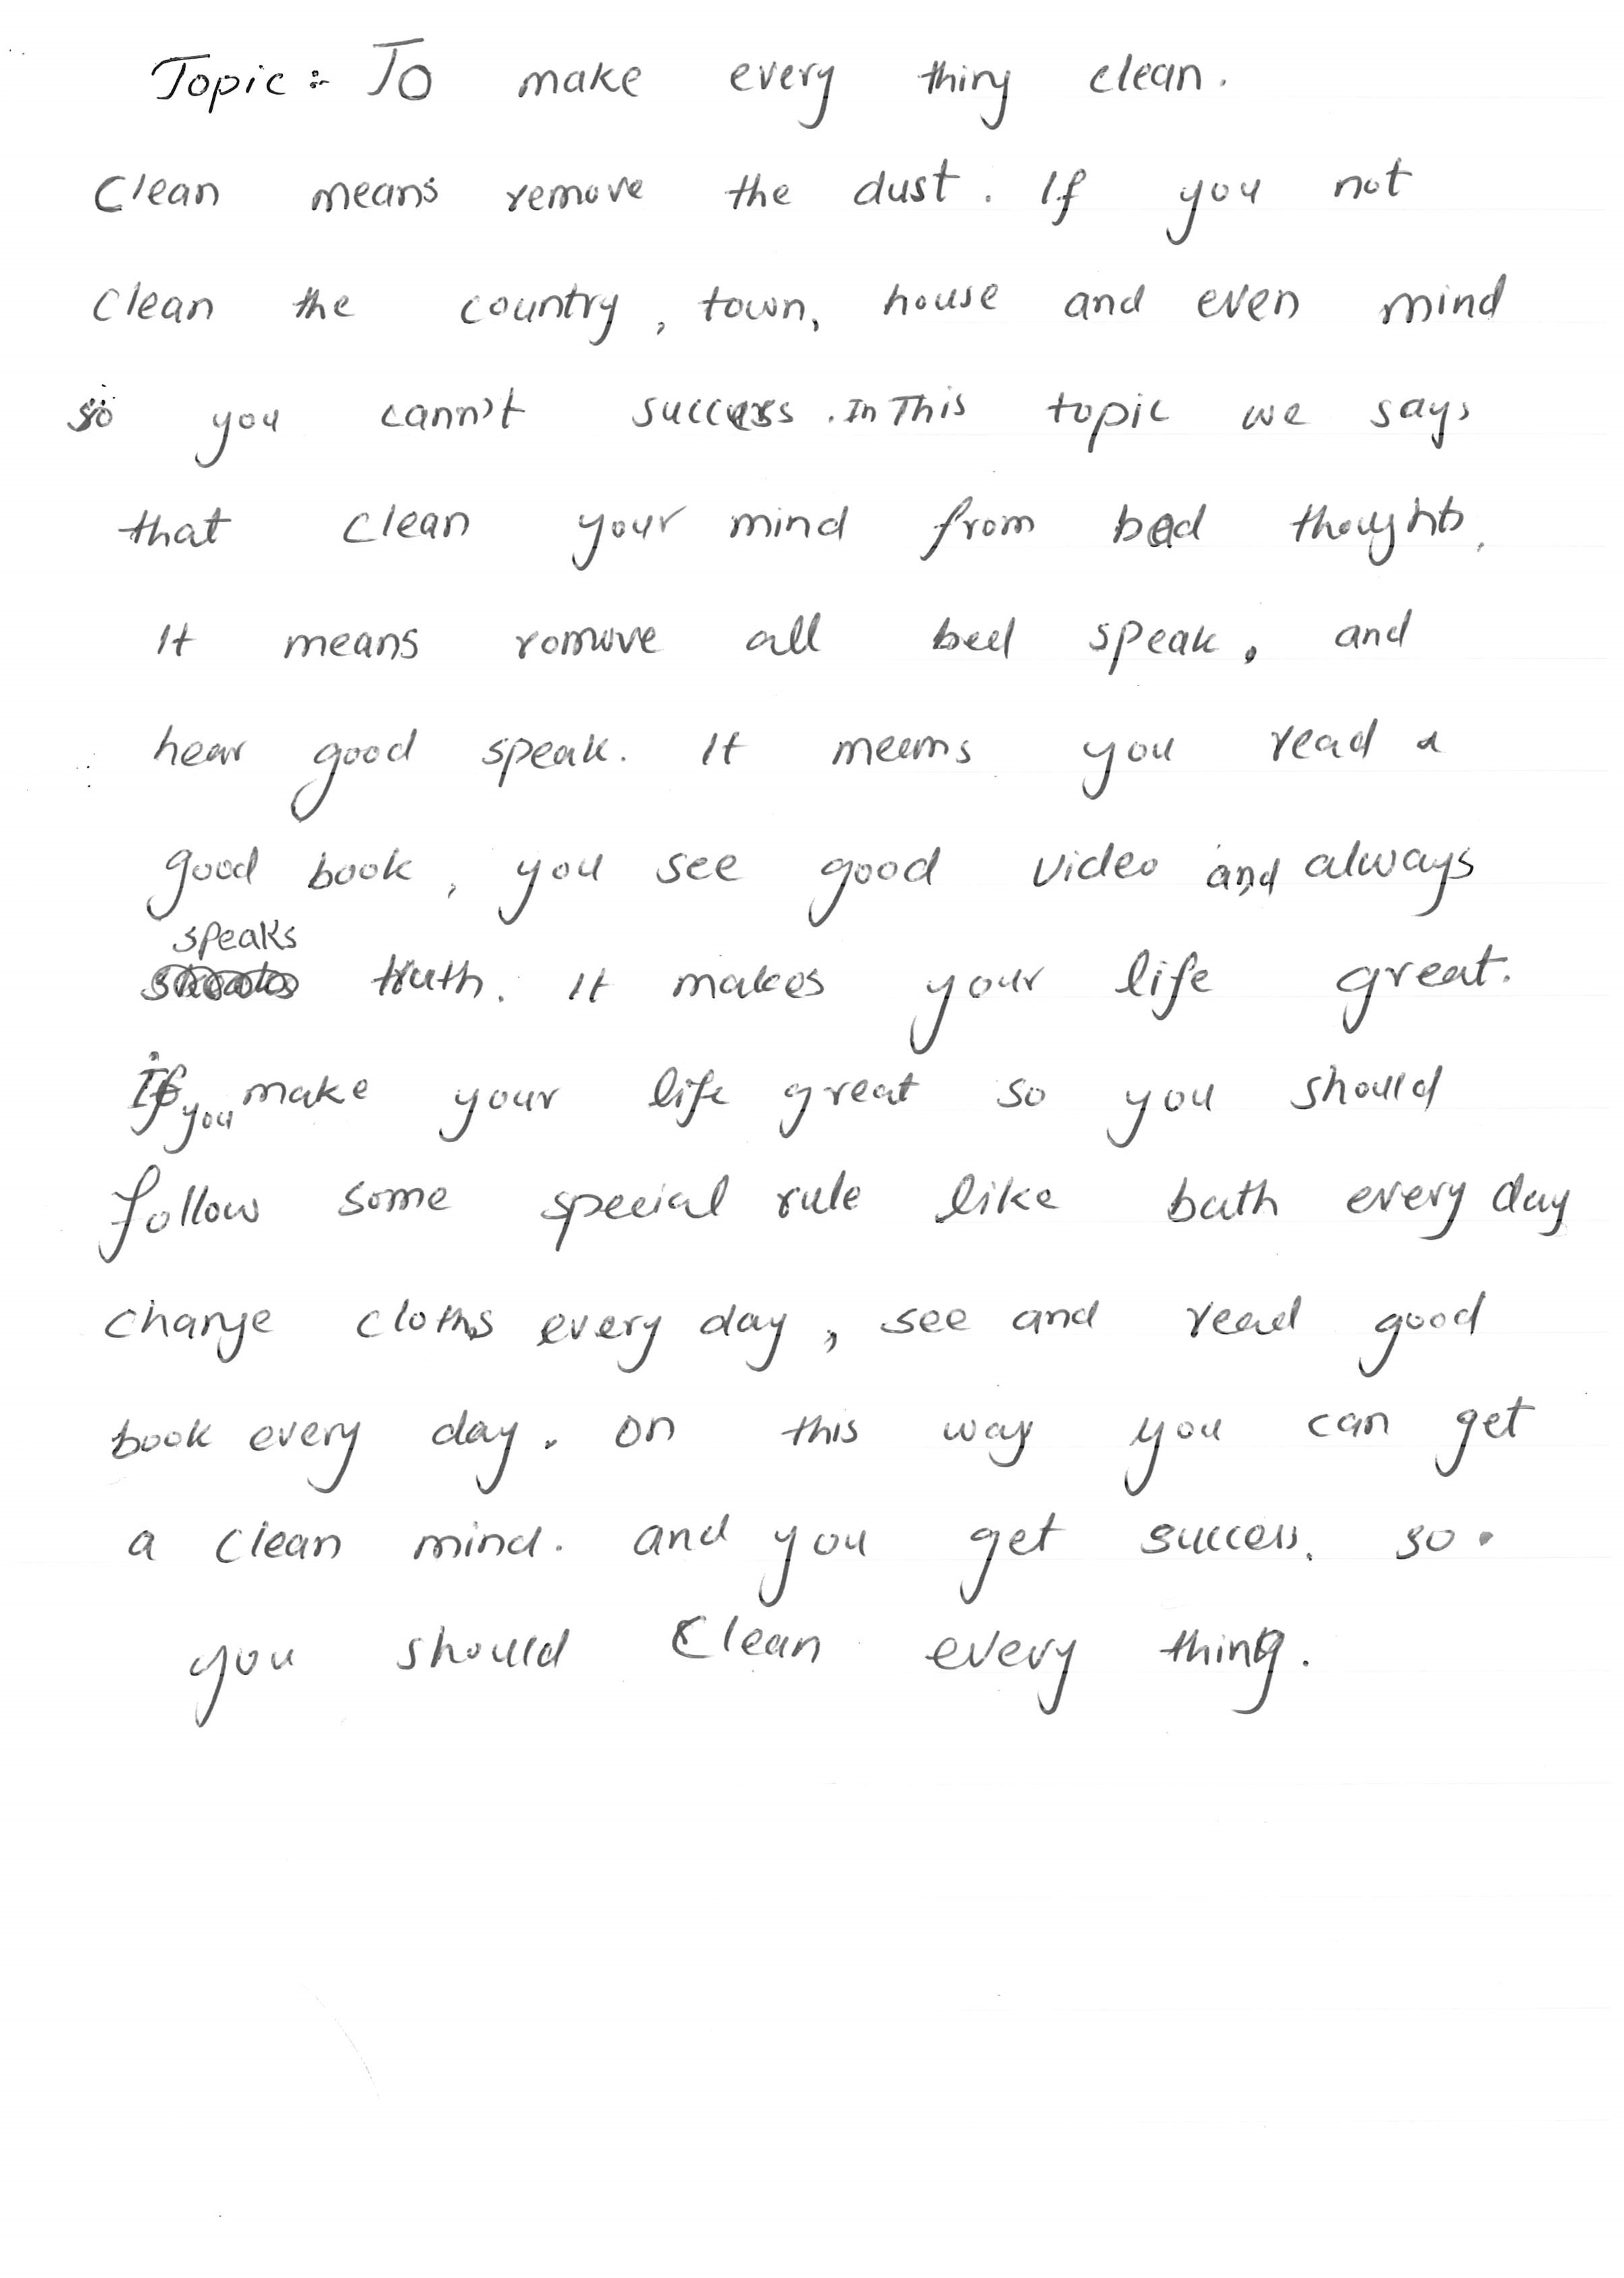 Topic :- To make every thing clean.
Clean means remove the dust. If you not
clean the country, town, house and even mind
so you cann't success. In This topic we says
that clean your mind from bad thoughts.
It means romove all bed speak, and
hear good speak. It meems you read a
good book, you see good video and always
speaks truth. It makes your life great.
If you make your life great so you should
follow some special rule like bath every day
change cloths every day, see and read good
book every day. on this way you can get
a clean mind. and you get success. so.
you should Clean every thing.